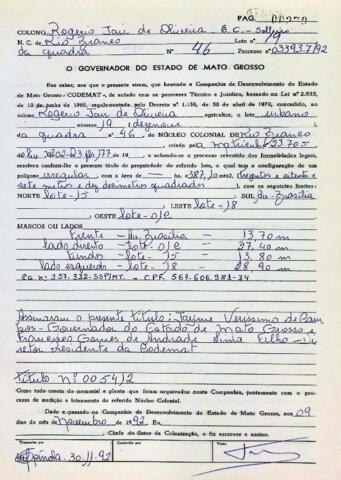 PAG. 00270
COLONO Rogerio Jair de Oliveira E. C. - Solteiro
N. C. de Rio Branco Lote nº 19
da quadra Nº 46 Processo nº 03393.7/92
O GOVERNADOR DO ESTADO DE MATO GROSSO
Faz saber, aos que o presente virem, que havendo a Companhia de Desenvolvimento do Estado
de Mato Grosso - CODEMAT -, de acordo com os pareceres Técnico e Jurídico, baseada na Lei nº 2.933,
regulamentada pelo Decreto nº 1.138, de 30 de abril de 1970, concedido, ao colono
Rogerio Jair de Oliveira agricultor, o lote urbano
número 19 dezenove
da quadra nº 46, do NÚCLEO COLONIAL DE Rio Branco
criado pela matricula 23.705
e achando-se o processo revestido das formalidades legais,
resolve conferir-lhe o presente título de propriedade do referido lote, o qual tem a configuração de um
polígono irregular com a área de — ha. 387,10 mts2 trezentos e oitenta e
sete metros e dez decimetros quadrados, com os seguintes limites:
NORTE lote-15 SUL Av. Brasilia
LESTE lote-18
OESTE lote-
MARCOS OU LADOS
Frente - Av. Brasilia - 13,70 m
lado direito - lote- - 27,40 m
fundos - lote-15 - 13,80 m
lado esquerdo - lote-18 - 28,90 m
CPF. 567.606.981-34
Assinaram o presente titulo: Jayme Verissimo de Cam
pos - Governador do Estado de Mato Grosso e
Francisco Gomes de Andrade Lima Filho - Di
retor presidente da Codemat
Titulo Nº 005412
Tudo como consta do memorial e planta que ficam arquivados nesta Companhia, juntamente com o pro-
cesso de medição e loteamento do referido Núcleo Colonial.
Dado e passado na Companhia de Desenvolvimento do Estado de Mato Grosso, aos 09
dias do mês de Novembro de 1992. Eu,
Chefe do Setor de Colonização, o fiz escrever e assino.
Transcrito por Conferido por Visto
30.11.92